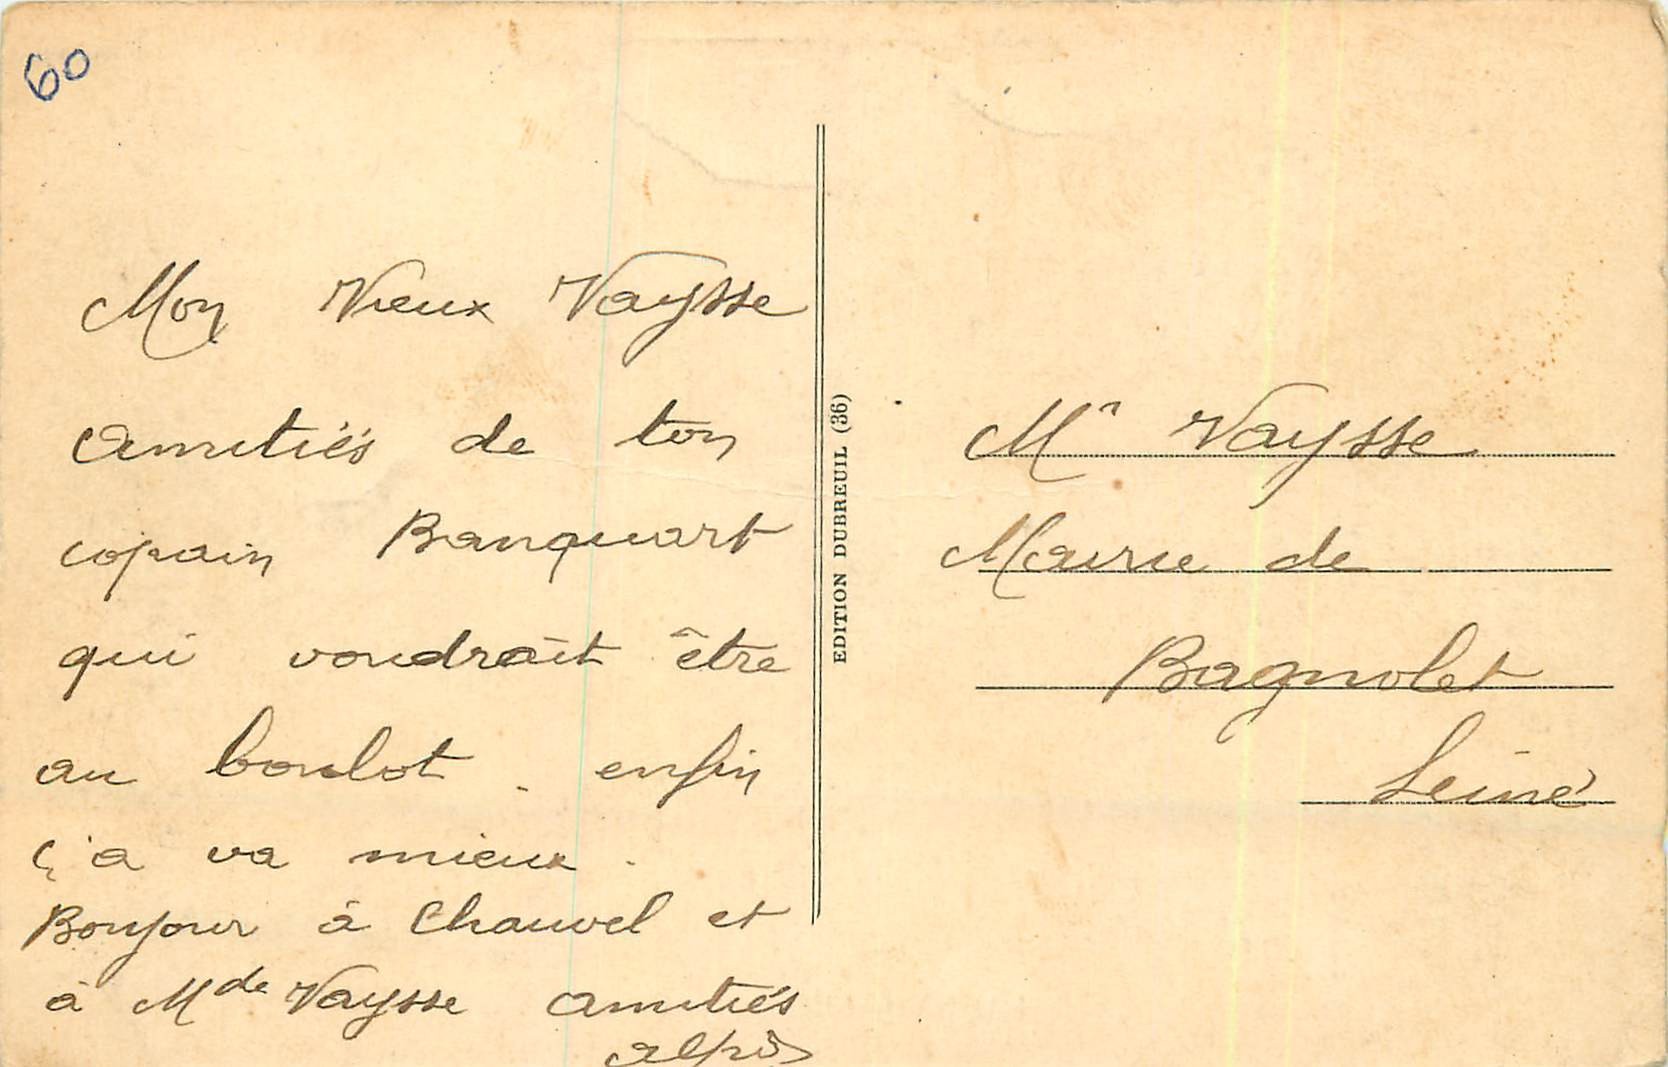 60
Mon Vieux Vaysse
Amitiés de ton
copain Banquart
qui voudrait être
au boulot. enfin
ç'a va mieux.
Bonjour à Chauvel et
à Mde Vaysse amitiés
EDITION DUBREUIL (36)
Mr Vaysse
Mairie de
Bagnolet
Seine